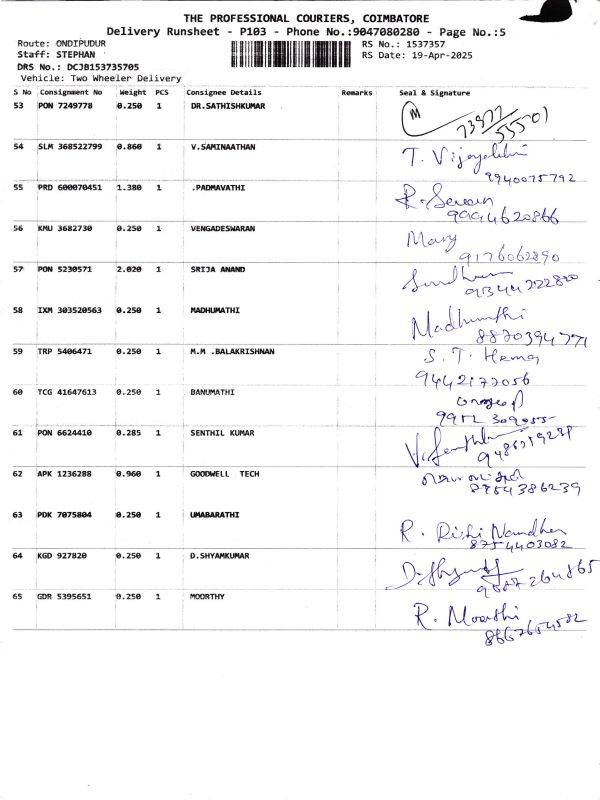 THE PROFESSIONAL COURIERS, COIMBATORE
Delivery Runsheet - P103 - Phone No.:9047080280 - Page No.:5
Route: ONDIPUDUR
RS No.: 1537357
Staff: STEPHAN
RS Date: 19-Apr-2025
DRS No.: DCJB153735705
Vehicle: Two Wheeler Delivery
S No Consignment No Weight PCS Consignee Details Remarks Seal & Signature
53 PON 7249778 0.250 1 DR.SATHISHKUMAR
54 SLM 368522799 0.860 1 V.SAMINAATHAN T. Vijayalakshmi
8940075792
55 PRD 600070451 1.380 1 .PADMAVATHI
9994620866
56 KMU 3682730 0.250 1 VENGADESWARAN Mary
9176062890
57 PON 5230571 2.020 1 SRIJA ANAND
58 IXM 303520563 0.250 1 MADHUMATHI Madhumathi
8870394771
59 TRP 5406471 0.250 1 M.M .BALAKRISHNAN S. T. Hema
9442177056
60 TCG 41647613 0.250 1 BANUMATHI
61 PON 6624410 0.285 1 SENTHIL KUMAR
62 APK 1236288 0.960 1 GOODWELL TECH
8754386239
63 PDK 7075804 0.250 1 UMABARATHI R. Rishi Nandhan
8754403082
64 KGD 927820 0.250 1 D.SHYAMKUMAR
65 GDR 5395651 0.250 1 MOORTHY R. Moorthi
8667654582